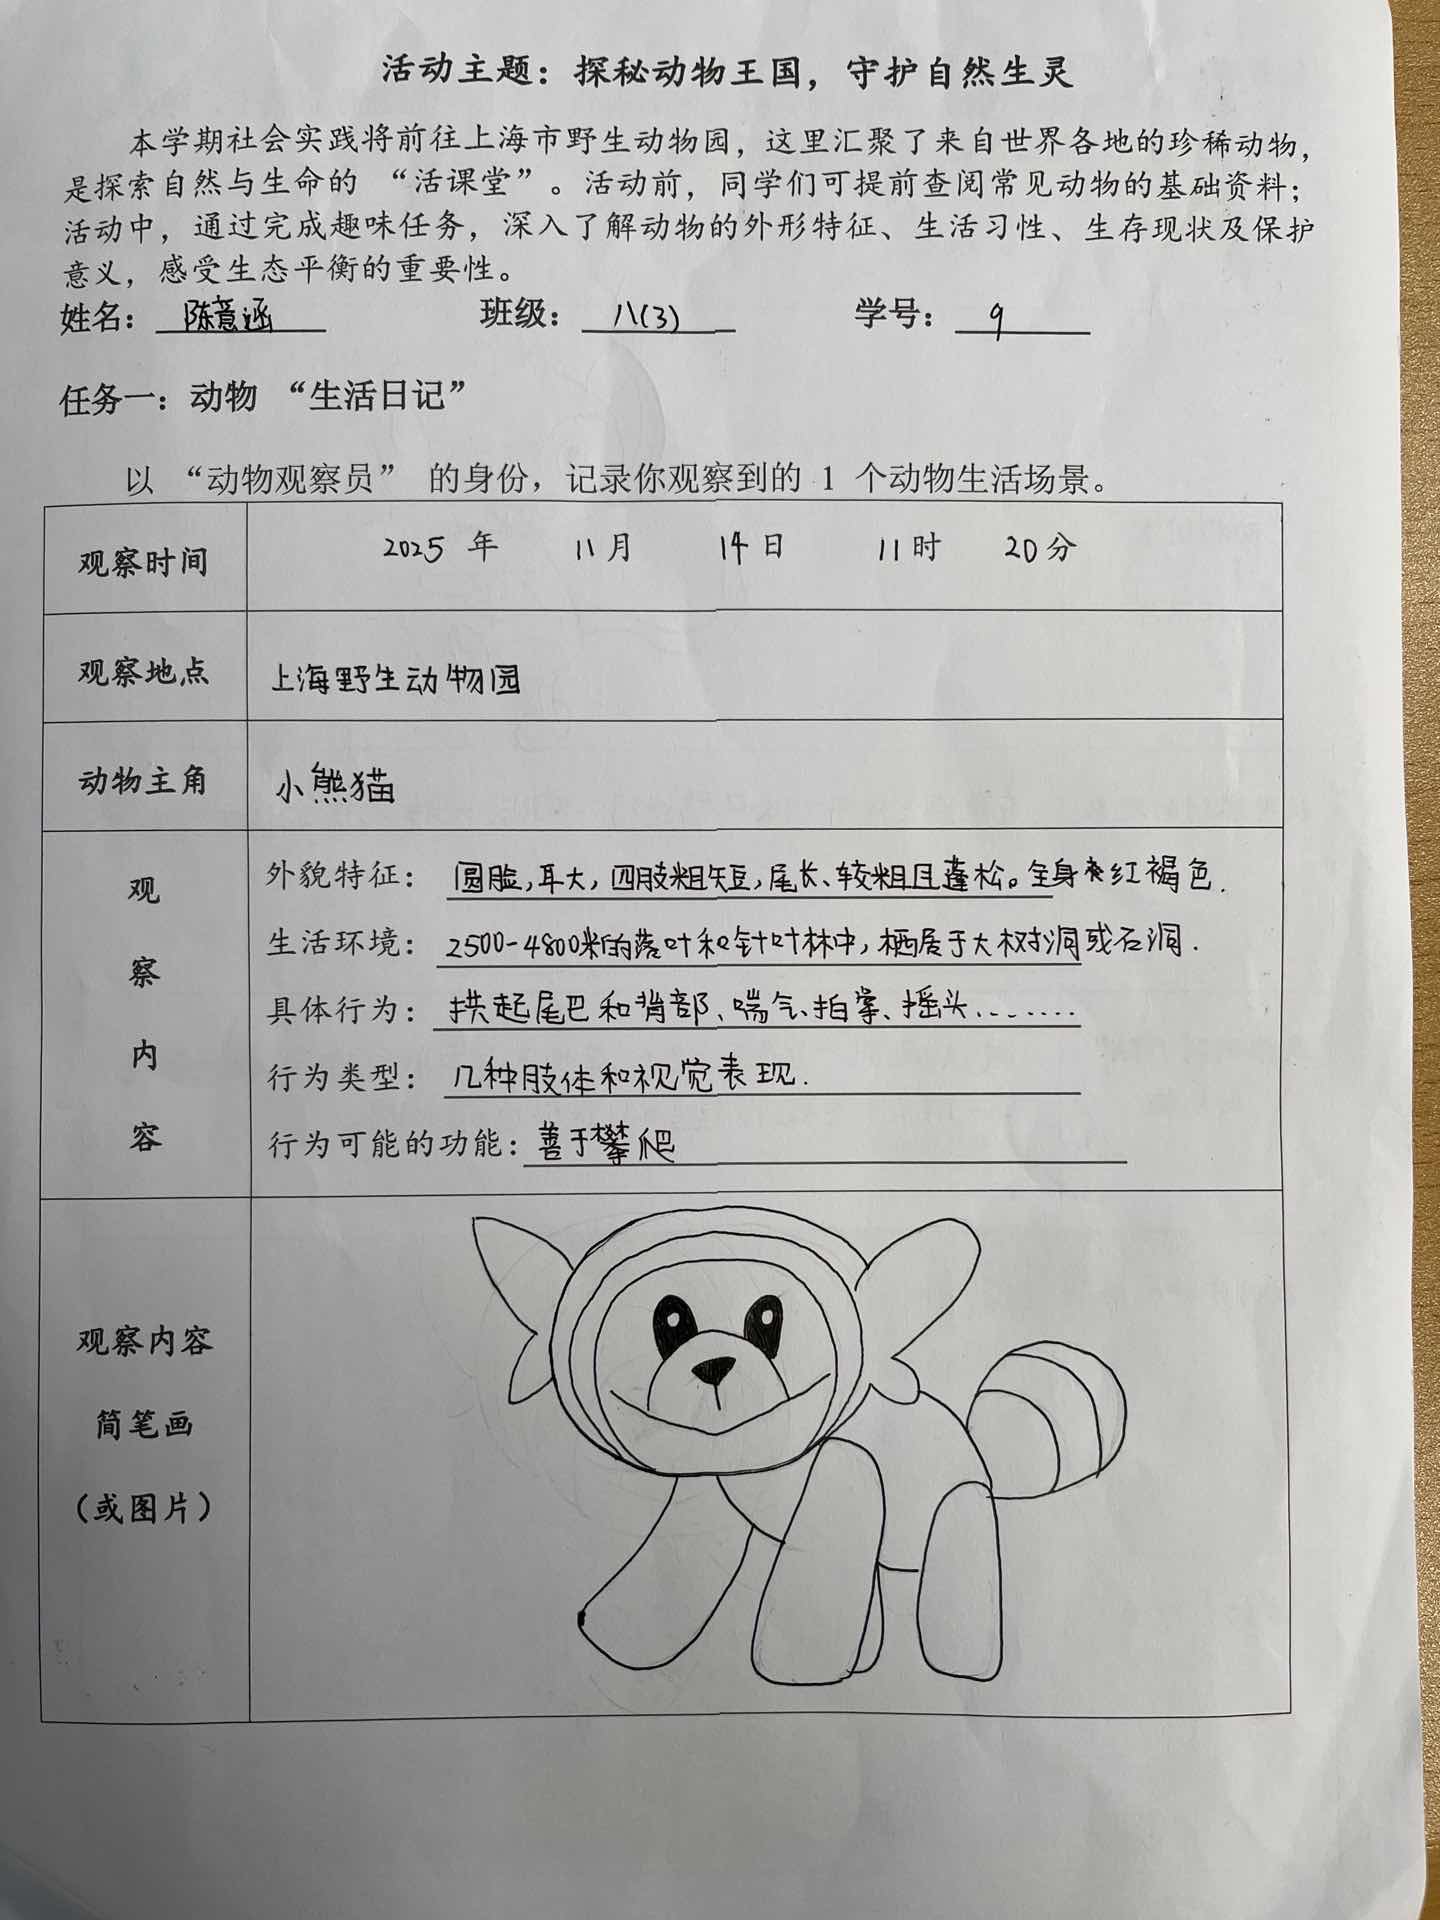 活动主题：探秘动物王国，守护自然生灵
本学期社会实践将前往上海市野生动物园，这里汇聚了来自世界各地的珍稀动物，
是探索自然与生命的 “活课堂”。活动前，同学们可提前查阅常见动物的基础资料；
活动中，通过完成趣味任务，深入了解动物的外形特征、生活习性、生存现状及保护
意义，感受生态平衡的重要性。
姓名：陈意涵 班级：八(3) 学号：9
任务一：动物 “生活日记”
以 “动物观察员” 的身份，记录你观察到的 1 个动物生活场景。
观察时间 2025 年 11 月 14 日 11 时 20 分
观察地点 上海野生动物园
动物主角 小熊猫
观察内容
外貌特征：圆脸，耳大，四肢粗短，尾长、较粗且蓬松。全身红褐色.
生活环境：2500-4800米的落叶和针叶林中，栖居于大树洞或石洞.
具体行为：拱起尾巴和背部、喘气、拍掌、摇头........
行为类型：几种肢体和视觉表现.
行为可能的功能：善于攀爬
观察内容
简笔画
（或图片）